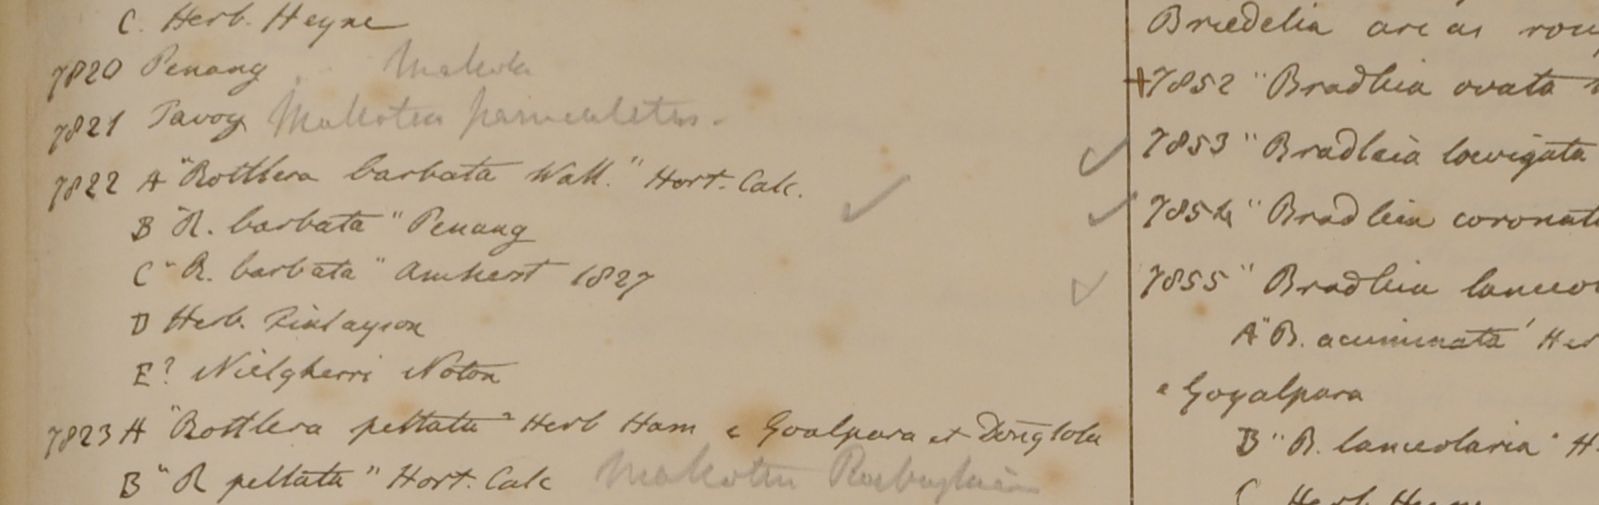 C. Herb. Heyne
7820 Penang
7821 Tavoy Malloten paniculatus.
7822 A "Rottlera barbata Wall." Hort. Calc.
B "R. barbata" Penang
C "R. barbata" Amherst 1827
D Herb. Finlayson
E? Nielgherri Noton
7823 A "Rottlera peltata" Herb Ham e Goalpara et Dong lola
B "R peltata" Hort. Calc
Briedelia are as
+7852 "Bradleia ovata
7853 "Bradleia laevigata
7854 "Bradleia coronat
7855 "Bradleia lanceo
A "B. acuminata' Her
e Goyalpara
B "B. lanceolaria" H.
C Herb. Heyne